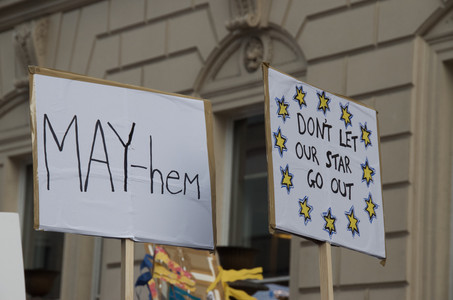 MAY-hem
DON'T LET
OUR STAR
GO OUT